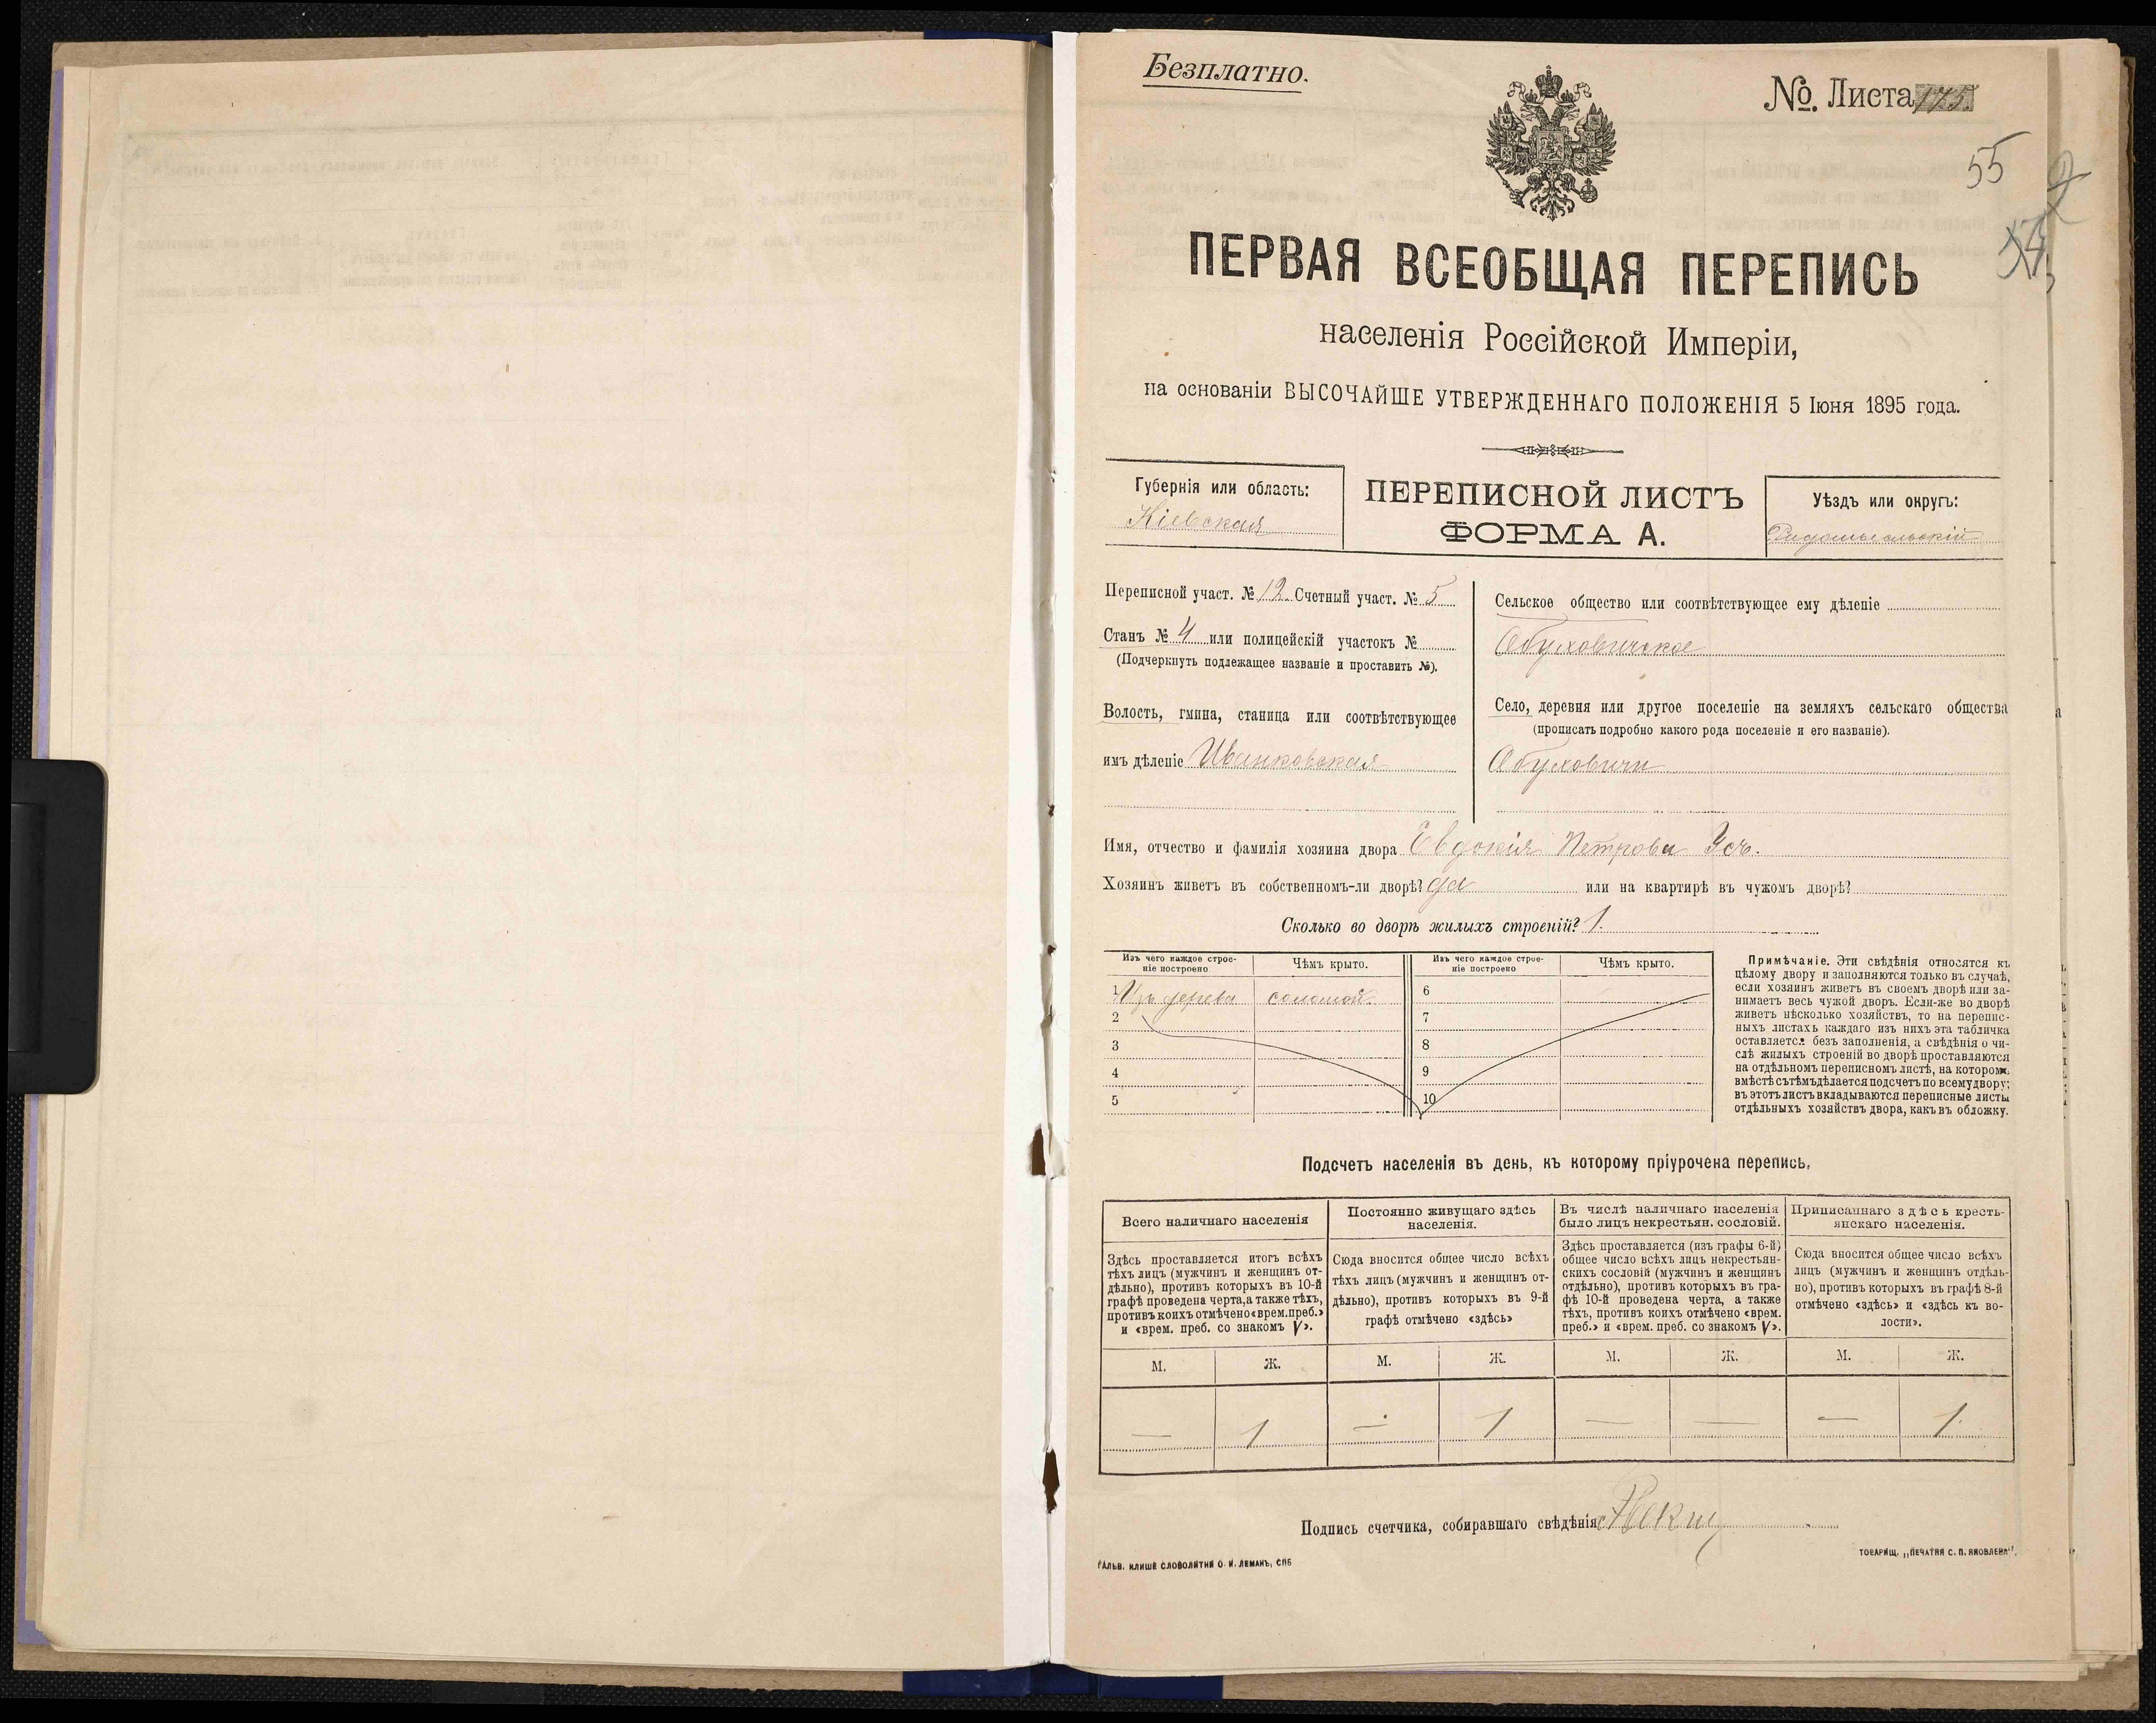 Безплатно.
№. Листа 175.
55
ПЕРВАЯ ВСЕОБЩАЯ ПЕРЕПИСЬ
населенія Россійской Имперіи,
на основаніи ВЫСОЧАЙШЕ УТВЕРЖДЕННАГО ПОЛОЖЕНІЯ 5 Іюня 1895 года.
Губернія или область:
Кіевская
ПЕРЕПИСНОЙ ЛИСТЪ
ФОРМА А.
Уѣздъ или округъ:
Радомысльскій
Переписной участ. № 12. Счетный участ. № 5
Станъ № 4 или полицейскій участокъ №
(Подчеркнуть подлежащее названіе и проставить №).
Волость, гмина, станица или соотвѣтствующее
имъ дѣленіе Иванковская
Сельское общество или соотвѣтствующее ему дѣленіе
Обуховичское
Село, деревня или другое поселеніе на земляхъ сельскаго общества
(прописать подробно какого рода поселеніе и его названіе).
Обуховичи
Имя, отчество и фамилія хозяина двора Евдокія Петрова Усъ.
Хозяинъ живетъ въ собственномъ-ли дворѣ? да или на квартирѣ въ чужомъ дворѣ?
Сколько во дворѣ жилыхъ строеній? 1.
Изъ чего каждое строе-
ніе построено
Чѣмъ крыто.
Изъ чего каждое строе-
ніе построено
Чѣмъ крыто.
1 Изъ дерева соломой 6
2 7
3 8
4 9
5 10
Примѣчаніе. Эти свѣдѣнія относятся къ
цѣлому двору и заполняются только въ случаѣ,
если хозяинъ живетъ въ своемъ дворѣ или за-
нимаетъ весь чужой дворъ. Если-же во дворѣ
живетъ нѣсколько хозяйствъ, то на перепис-
ныхъ листахъ каждаго изъ нихъ эта табличка
оставляется безъ заполненія, а свѣдѣнія о чи-
слѣ жилыхъ строеній во дворѣ проставляются
на отдѣльномъ переписномъ листѣ, на которомъ
вмѣстѣ съ тѣмъ дѣлается подсчетъ по всему двору;
въ этотъ листъ вкладываются переписные листы
отдѣльныхъ хозяйствъ двора, какъ въ обложку.
Подсчетъ населенія въ день, къ которому пріурочена перепись.
Всего наличнаго населенія
Здѣсь проставляется итогъ всѣхъ
тѣхъ лицъ (мужчинъ и женщинъ от-
дѣльно), противъ которыхъ въ 10-й
графѣ проведена черта, а также тѣхъ,
противъ коихъ отмѣчено «врем. преб.»
и «врем. преб. со знакомъ V».
Постоянно живущаго здѣсь
населенія.
Сюда вносится общее число всѣхъ
тѣхъ лицъ (мужчинъ и женщинъ от-
дѣльно), противъ которыхъ въ 9-й
графѣ отмѣчено «здѣсь»
Въ числѣ наличнаго населенія
было лицъ некрестьян. сословій.
Здѣсь проставляется (изъ графы 6-й)
общее число всѣхъ лицъ некрестьян-
скихъ сословій (мужчинъ и женщинъ
отдѣльно), противъ которыхъ въ гра-
фѣ 10-й проведена черта, а также
тѣхъ, противъ коихъ отмѣчено «врем.
преб.» и «врем. преб. со знакомъ V».
Приписаннаго здѣсь кресть-
янскаго населенія.
Сюда вносится общее число всѣхъ
лицъ (мужчинъ и женщинъ отдѣль-
но), противъ которыхъ въ графѣ 8-й
отмѣчено «здѣсь» и «здѣсь къ во-
лости».
М. Ж. М. Ж. М. Ж. М. Ж.
— 1 — 1 — — — 1.
Подпись счетчика, собиравшаго свѣдѣнія
Гальв. клише словолитни О. И. Леманъ, СПБ
Товарищ. „Печатня С. П. Яковлева“.